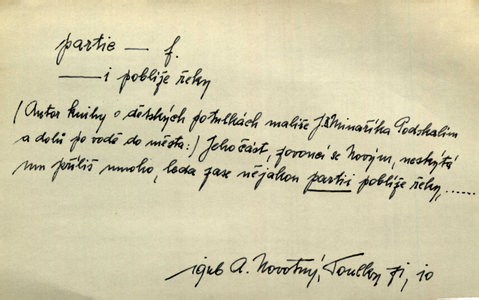 partie — f.
—— i poblíže řeky
(Autor knihy o dětských potulkách malíře J. Minaříka Podskalím
a dolů po vodě do města:) Jeho část, zvoucí se Novým, neskýtá
mu příliš mnoho, leda zase nějakou partii poblíže řeky, ......
A. Novotný, Toulky